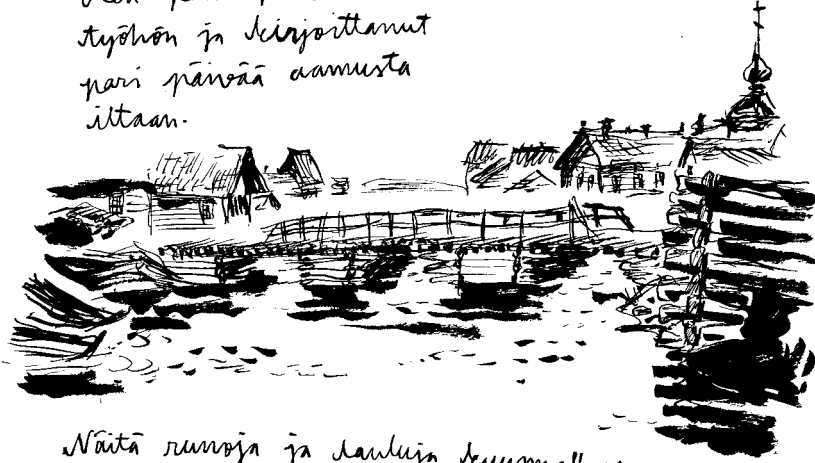 työhön ja kirjoittanut
pari päivää aamusta
iltaan.
Näitä runoja ja lauluja